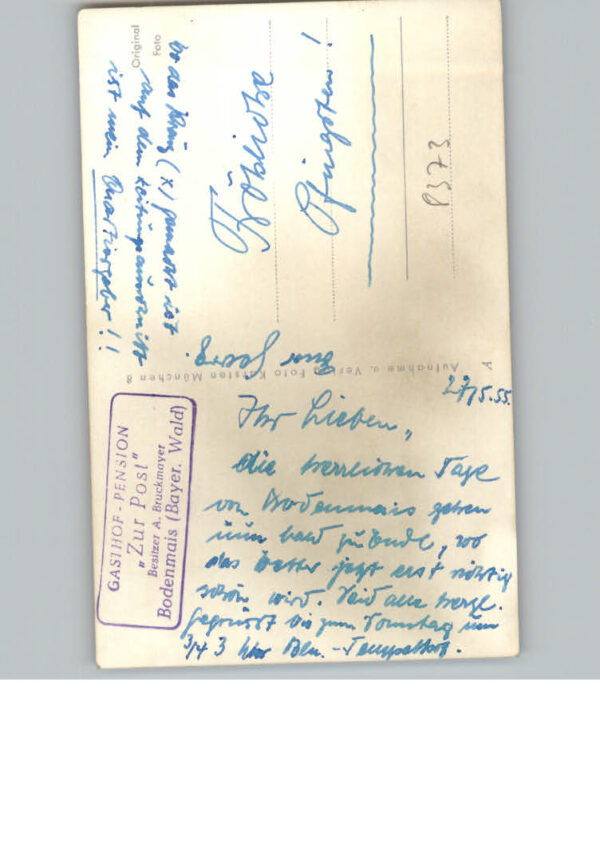 27/5.55.
Ihr Lieben,
die herrlichen Tage
von Bodenmais gehen
nun bald zu Ende, wo
das Wetter jetzt erst richtig
schön wird. Seid alle herzl.
gegrüsst bis zum Sonntag um
3/4 3 Uhr Bln. - Tempelhof.
Euer Georg
Fröhliche
Pfingsten!
wo das Kreuz (x) gemacht ist
auf dem Zeitungsausschnitt
ist mein Quartiergeber!!
P373
Original
Foto
Aufnahme u. Verlag Foto Karsten München 8
A
GASTHOF - PENSION
„Zur Post"
Besitzer A. Bruckmayer
Bodenmais (Bayer. Wald)